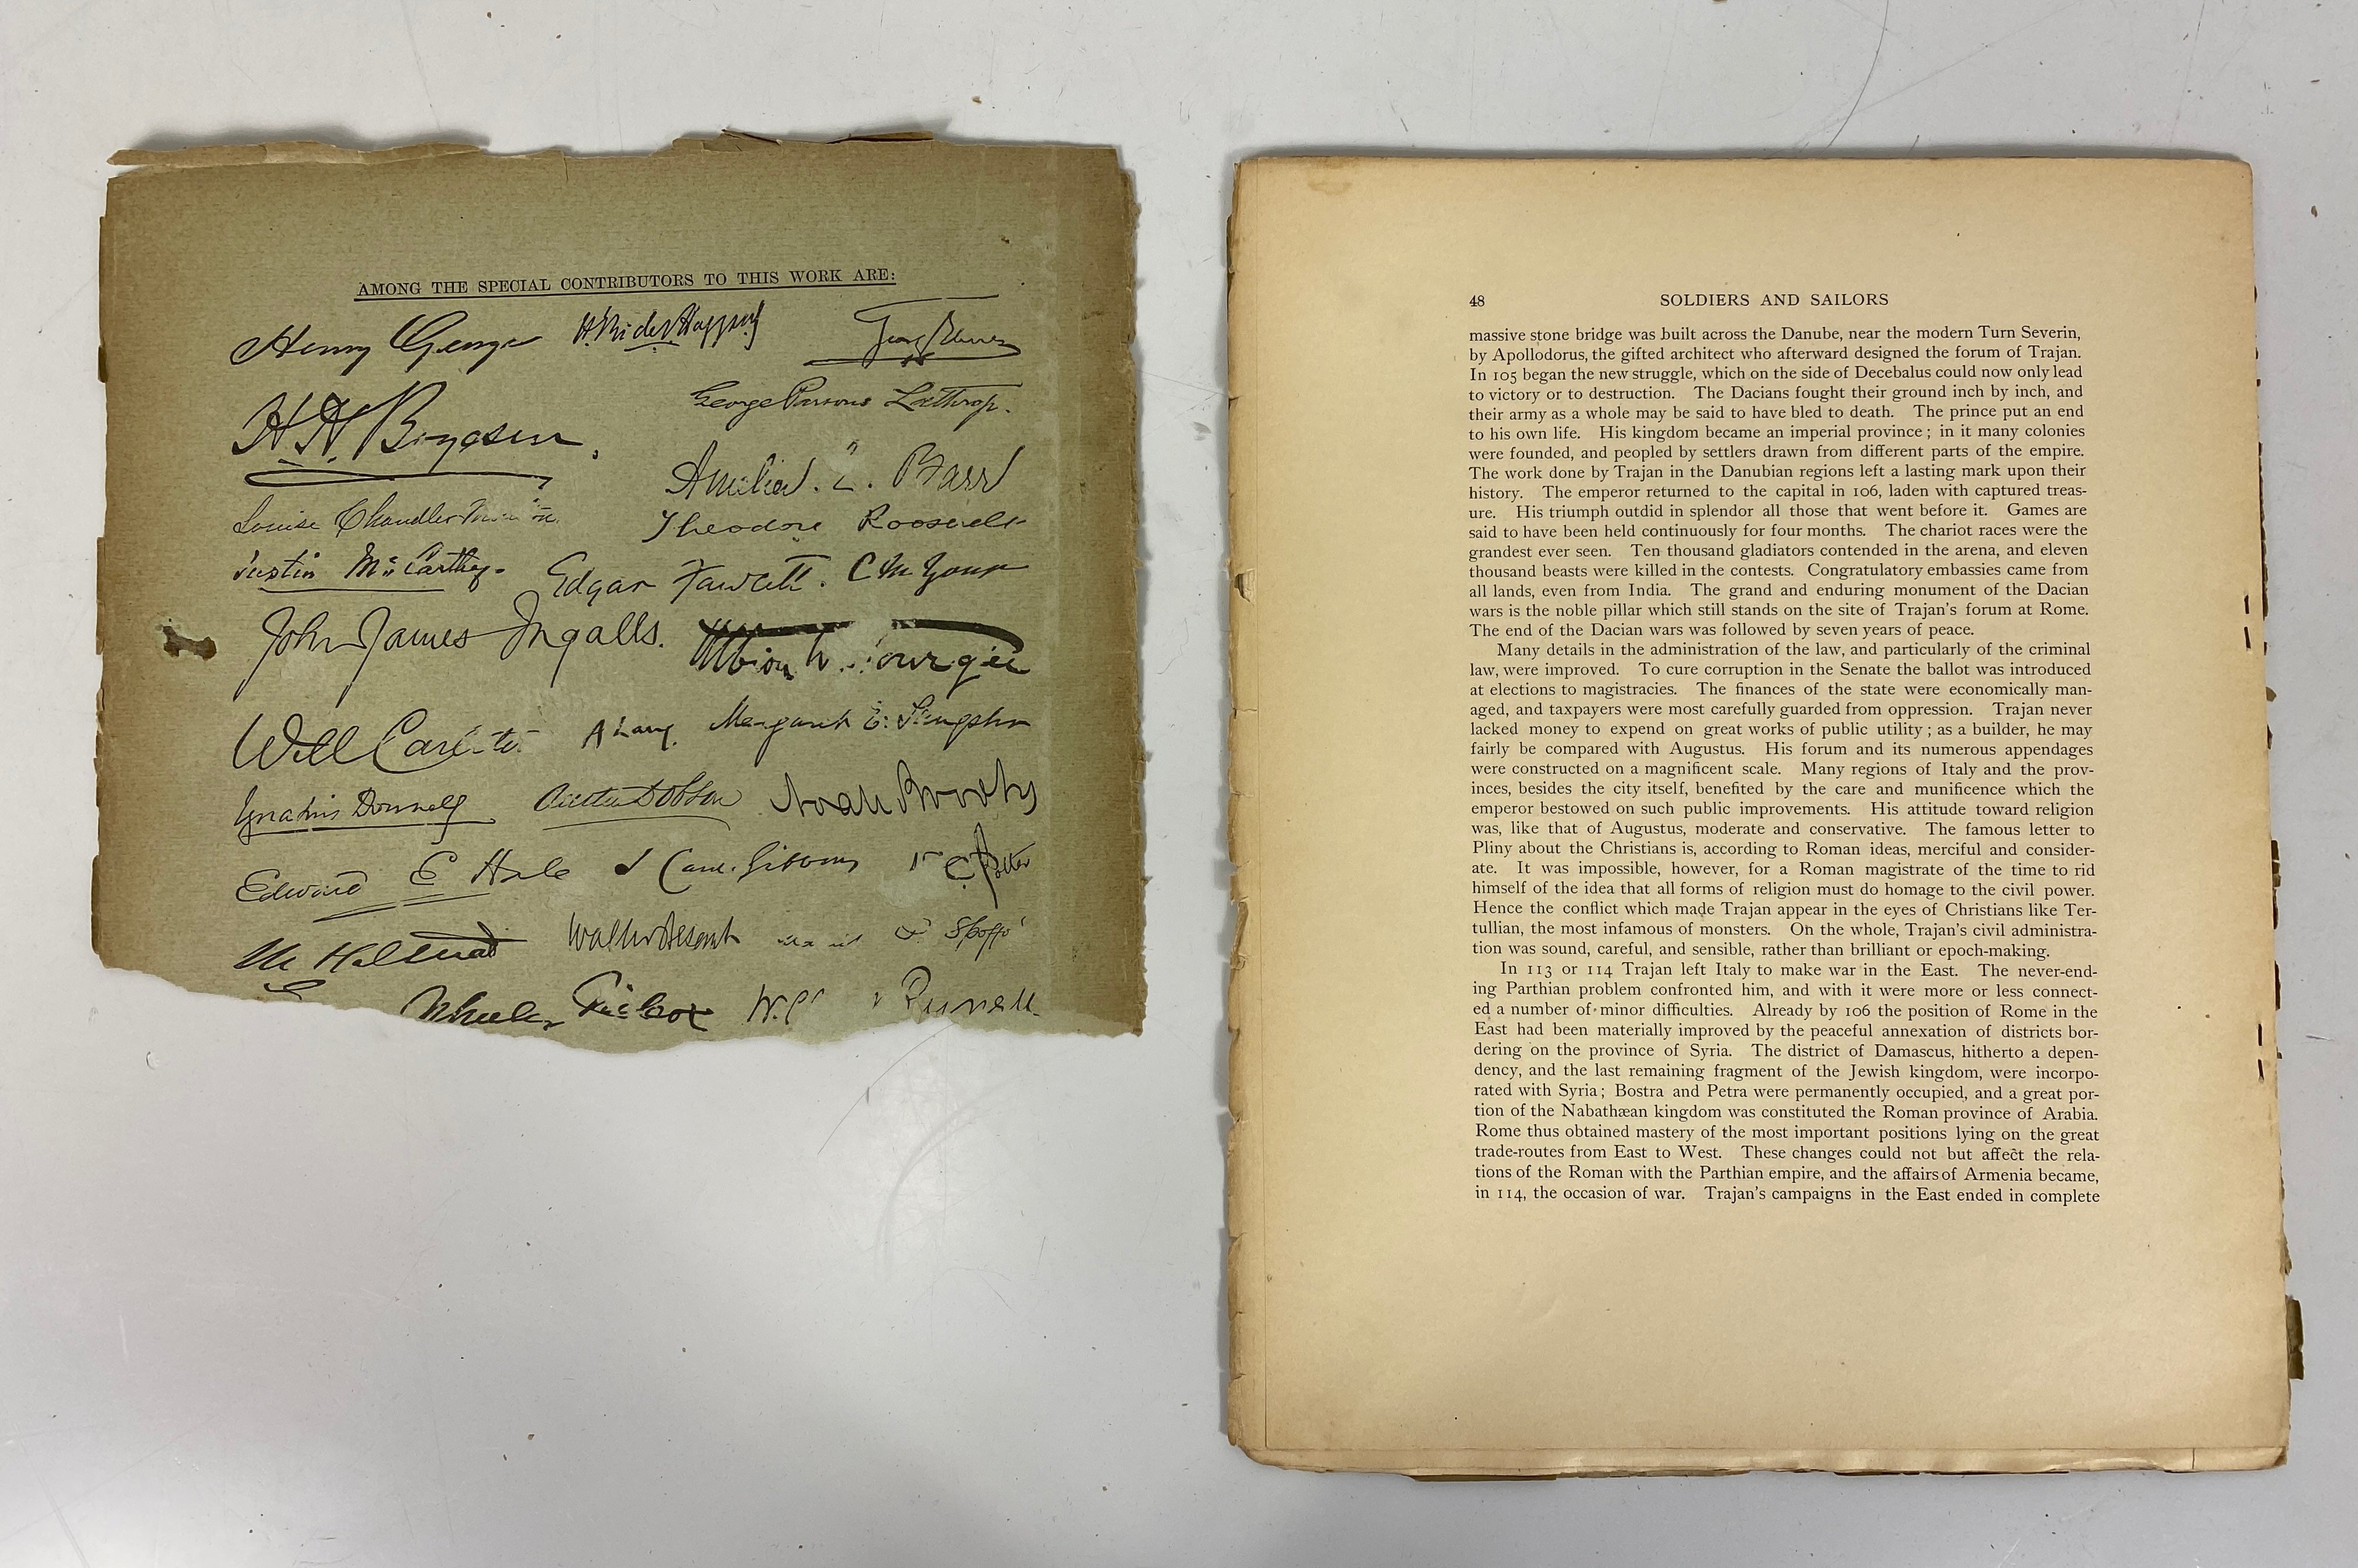 AMONG THE SPECIAL CONTRIBUTORS TO THIS WORK ARE:
Henry George H. Rider Haggard
George Parsons Lathrop.
H. H. Boyesen.
Amelia. E. Barr
Louise Chandler
Theodore Roosevelt
Justin McCarthy. Edgar Fawcett. C M Yonge
John James Ingalls. Albion W. Tourgée
Will Carleton A Lang. Margaret E. Sangster
Ignatius Donnelly Austin Dobson Noah Brooks
Edward E Hale J Card. Gibbons C. Potter
M Halstead Walter Besant
Wheeler Wilcox W. Russell
48 SOLDIERS AND SAILORS
massive stone bridge was built across the Danube, near the modern Turn Severin,
by Apollodorus, the gifted architect who afterward designed the forum of Trajan.
In 105 began the new struggle, which on the side of Decebalus could now only lead
to victory or to destruction. The Dacians fought their ground inch by inch, and
their army as a whole may be said to have bled to death. The prince put an end
to his own life. His kingdom became an imperial province; in it many colonies
were founded, and peopled by settlers drawn from different parts of the empire.
The work done by Trajan in the Danubian regions left a lasting mark upon their
history. The emperor returned to the capital in 106, laden with captured treas-
ure. His triumph outdid in splendor all those that went before it. Games are
said to have been held continuously for four months. The chariot races were the
grandest ever seen. Ten thousand gladiators contended in the arena, and eleven
thousand beasts were killed in the contests. Congratulatory embassies came from
all lands, even from India. The grand and enduring monument of the Dacian
wars is the noble pillar which still stands on the site of Trajan's forum at Rome.
The end of the Dacian wars was followed by seven years of peace.
Many details in the administration of the law, and particularly of the criminal
law, were improved. To cure corruption in the Senate the ballot was introduced
at elections to magistracies. The finances of the state were economically man-
aged, and taxpayers were most carefully guarded from oppression. Trajan never
lacked money to expend on great works of public utility; as a builder, he may
fairly be compared with Augustus. His forum and its numerous appendages
were constructed on a magnificent scale. Many regions of Italy and the prov-
inces, besides the city itself, benefited by the care and munificence which the
emperor bestowed on such public improvements. His attitude toward religion
was, like that of Augustus, moderate and conservative. The famous letter to
Pliny about the Christians is, according to Roman ideas, merciful and consider-
ate. It was impossible, however, for a Roman magistrate of the time to rid
himself of the idea that all forms of religion must do homage to the civil power.
Hence the conflict which made Trajan appear in the eyes of Christians like Ter-
tullian, the most infamous of monsters. On the whole, Trajan's civil administra-
tion was sound, careful, and sensible, rather than brilliant or epoch-making.
In 113 or 114 Trajan left Italy to make war in the East. The never-end-
ing Parthian problem confronted him, and with it were more or less connect-
ed a number of minor difficulties. Already by 106 the position of Rome in the
East had been materially improved by the peaceful annexation of districts bor-
dering on the province of Syria. The district of Damascus, hitherto a depen-
dency, and the last remaining fragment of the Jewish kingdom, were incorpo-
rated with Syria; Bostra and Petra were permanently occupied, and a great por-
tion of the Nabathæan kingdom was constituted the Roman province of Arabia.
Rome thus obtained mastery of the most important positions lying on the great
trade-routes from East to West. These changes could not but affect the rela-
tions of the Roman with the Parthian empire, and the affairs of Armenia became,
in 114, the occasion of war. Trajan's campaigns in the East ended in complete